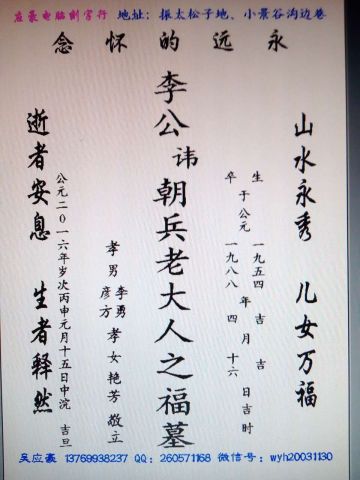 应豪电脑刻字行 地址：振太松子地、小景谷沟边巷
永远的怀念
山水永秀 儿女万福
生 一九五四 吉 吉
于公元 年 月 日吉时
卒 一九八八 四 十六
李公讳朝兵老大人之福墓
孝男 李勇 彦方 孝女 艳芳 敬立
公元二0一六年岁次丙申元月十五日中浣 吉旦
逝者安息 生者释然
吴应豪 13769938237 QQ：260571168 微信号：wyh20031130